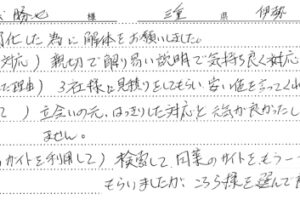 勝也 様 三重 県 伊勢
化した為に解体をお願いしました。
対応) 親切で解り易い説明で気持ち良く対応
た理由) 3社様に見積りをしてもらい、安い値を言ってくれ
て) 立会いの元、はっきりした対応と元気が良かったし
ません。
サイトを利用して) 検索して、同業のサイトをもう一つ
もらいましたが、こちら様を選んで